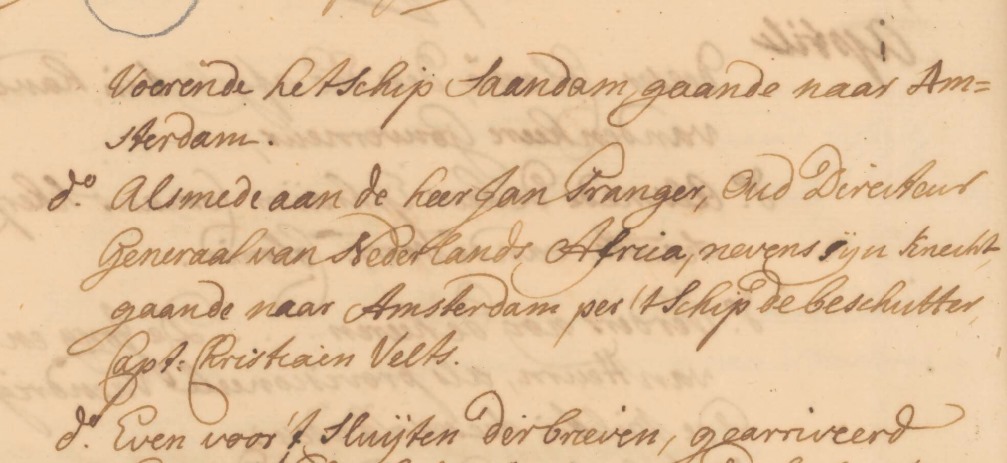 Voerende het Schip Saandam, gaande naar Am=
sterdam.
do. Alsmede aan de heer Jan Pranger, Oud Directeur
Generaal van Nederlands Africa, nevens sijn knecht
gaande naar Amsterdam per 't Schip de beschutter,
Capt: Christiaen Velts.
do. Even voor 't sluijten der brieven, gearriveerd